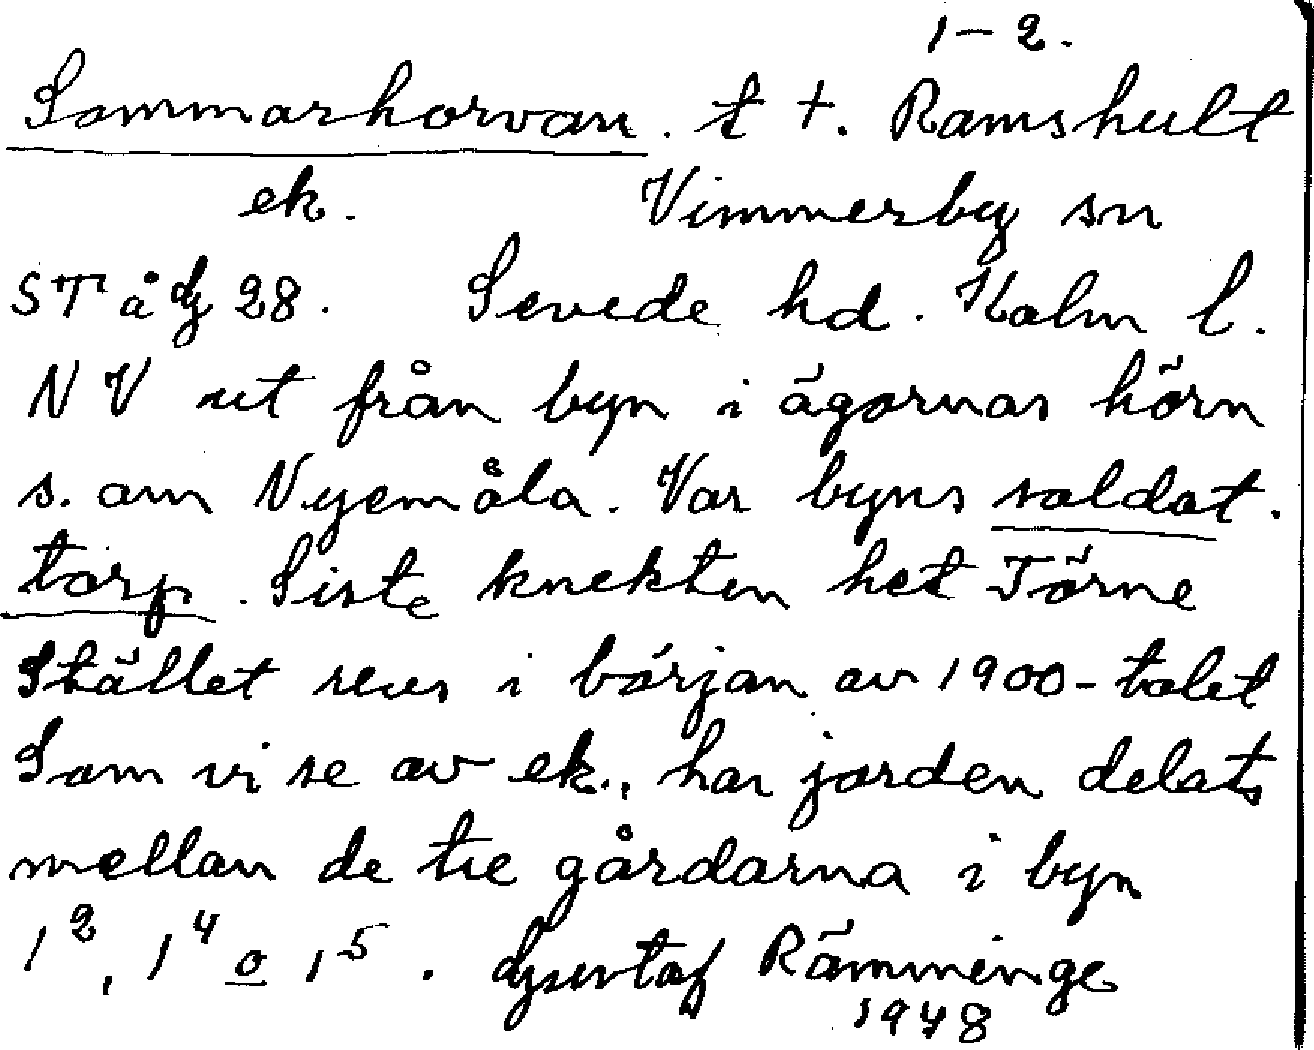 1-2.
Sommarhorvan. t +. Ramshult
ek. Vimmerby sn
ST ådg 28. Sevede hd. Kalm l.
NV ut från byn i ägornas hörn
s. om Nyemåla. Var byns soldat-
torp. Siste knekten het Törne
Stället revs i början av 1900-talet
Som vi se av ek., har jorden delats
mellan de tre gårdarna i byn
1², 1⁴ o 1⁵. Gustaf Rämminge
1948